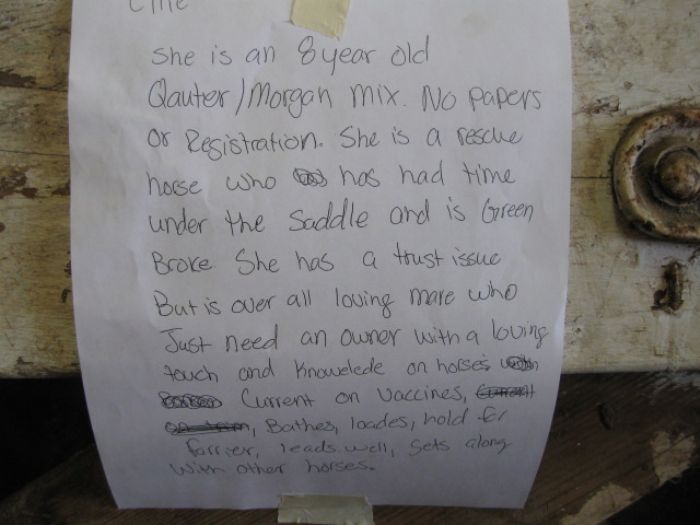 She is an 8 year old
Qauter/Morgan mix. No papers
or Registration. She is a rescue
horse who has had time
under the saddle and is Green
Broke She has a trust issue
But is over all loving mare who
Just need an owner with a loving
touch and Knowelede on horses
Current on vaccines,
, Bathes, loades, hold for
farrier, leads well, Gets along
with other horses.